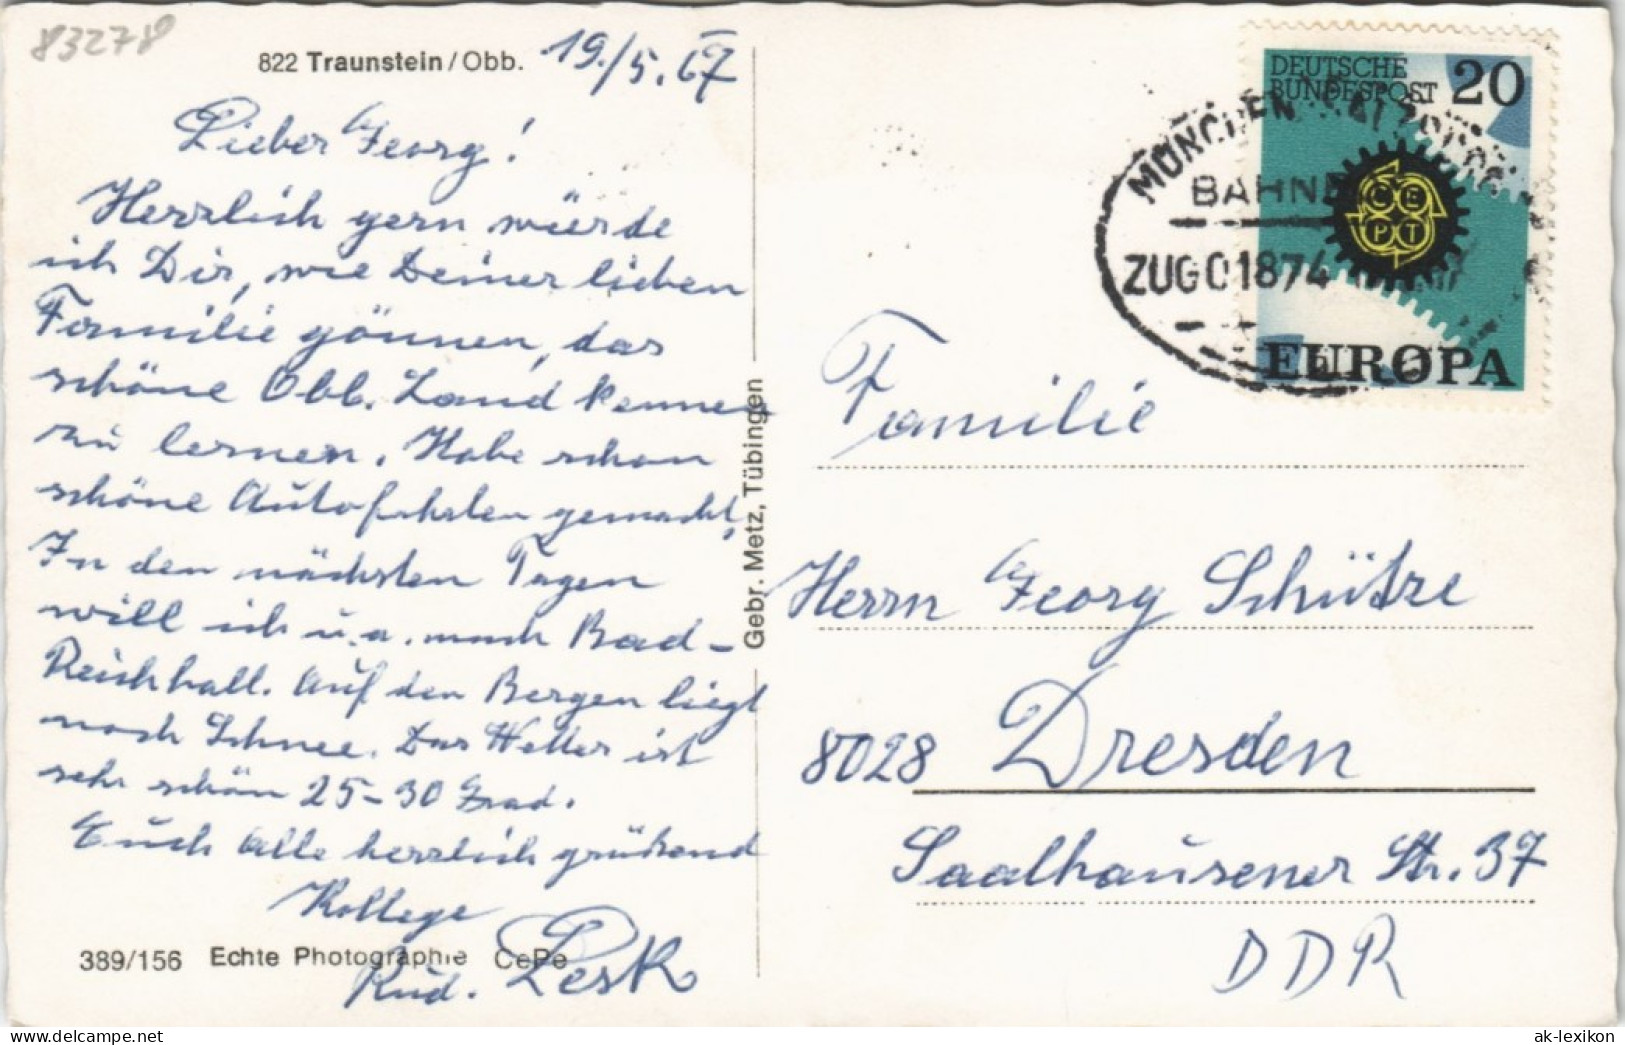 83278
822 Traunstein/Obb. 19./5.67
Lieber Georg!
Herzlich gern würde
ich Dir, wie Deiner lieben
Familie gönnen, das
schöne Obb. Land kennen
zu lernen. Habe schon
schöne Autofahrten gemacht,
In den nächsten Tagen
will ich u.a. nach Bad-
Reichhall. Auf den Bergen liegt
noch Schnee. Das Wetter ist
sehr schön 25-30 Grad.
Euch alle herzlich grüßend
Kollege
Rud. Lesk
389/156 Echte Photographie CePe
Gebr. Metz, Tübingen
DEUTSCHE
BUNDESPOST 20
CEPT
EUROPA
MÜNCHEN
BAHNP
ZUG 01874
Familie
Herrn Georg Schütze
8028 Dresden
Saalhausener Str. 37
DDR
delcampe.net
ak-lexikon